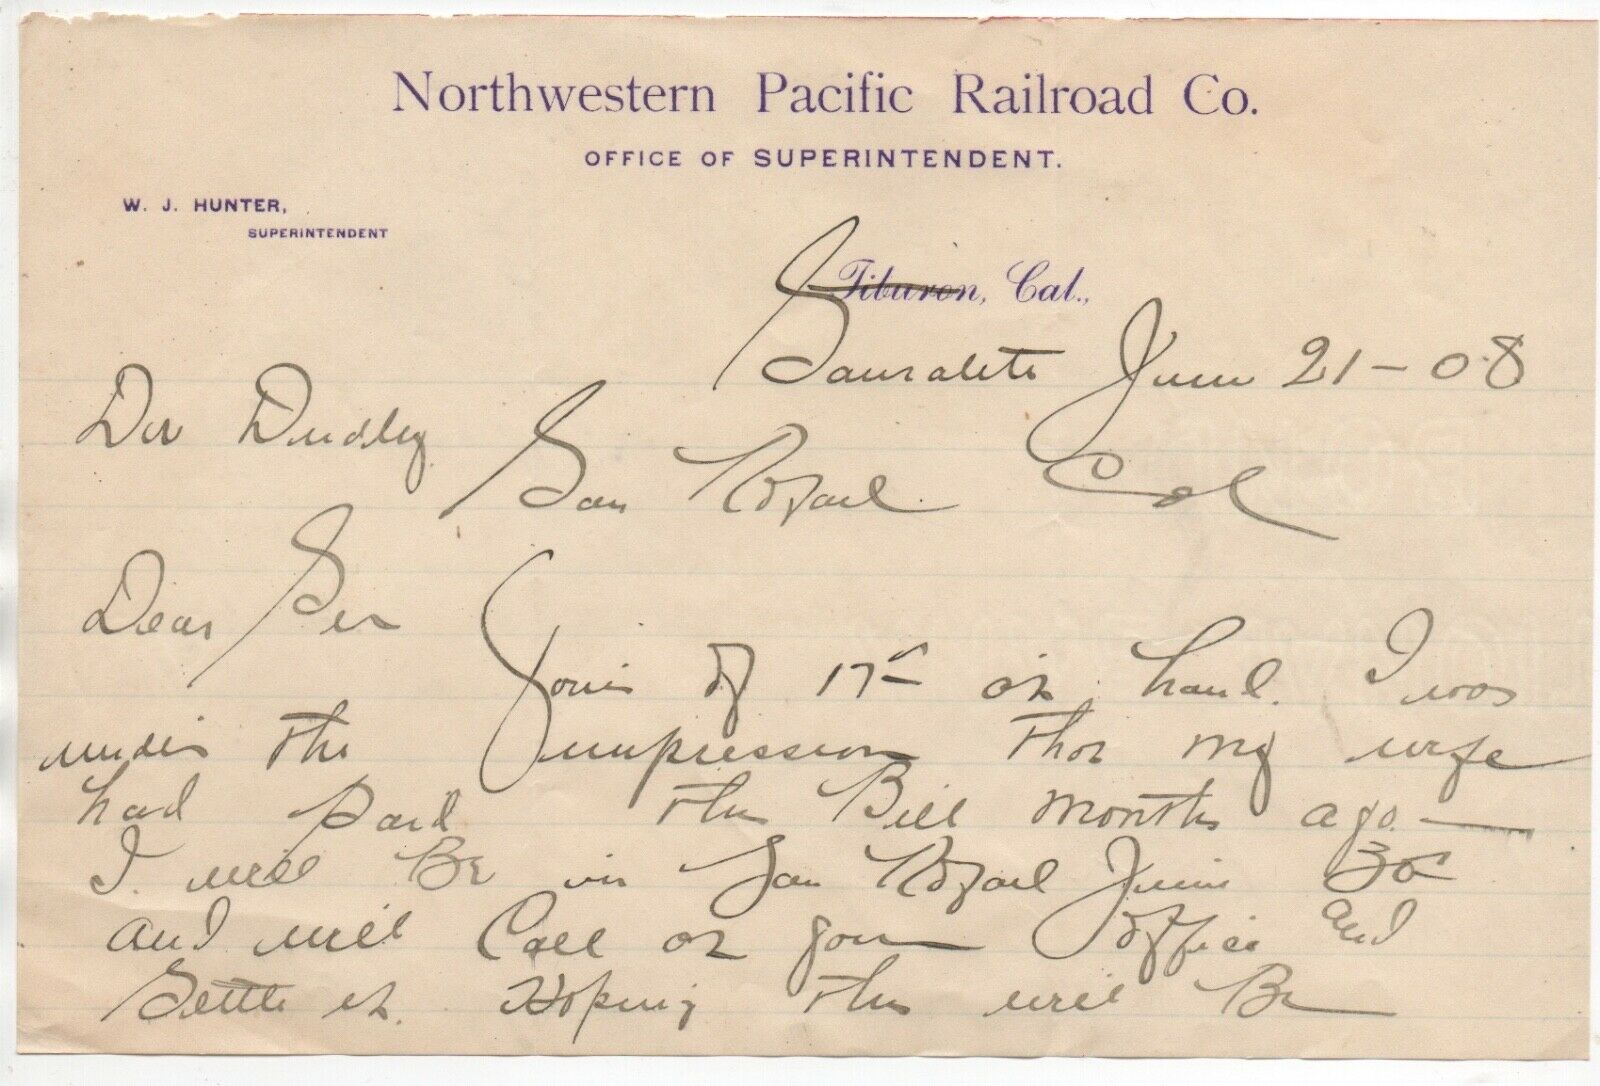 Northwestern Pacific Railroad Co.
OFFICE OF SUPERINTENDENT.
W. J. HUNTER,
SUPERINTENDENT
Tiburon, Cal.,
Sausalito June 21-08
Dr Dudley San Rafael Cal
Dear Sir Yours of 17th at hand. I was
under the impression that my wife
had paid this Bill months ago.—
I will Be in San Rafael June 30
and will Call at your office and
Settle it. Hoping this will Be